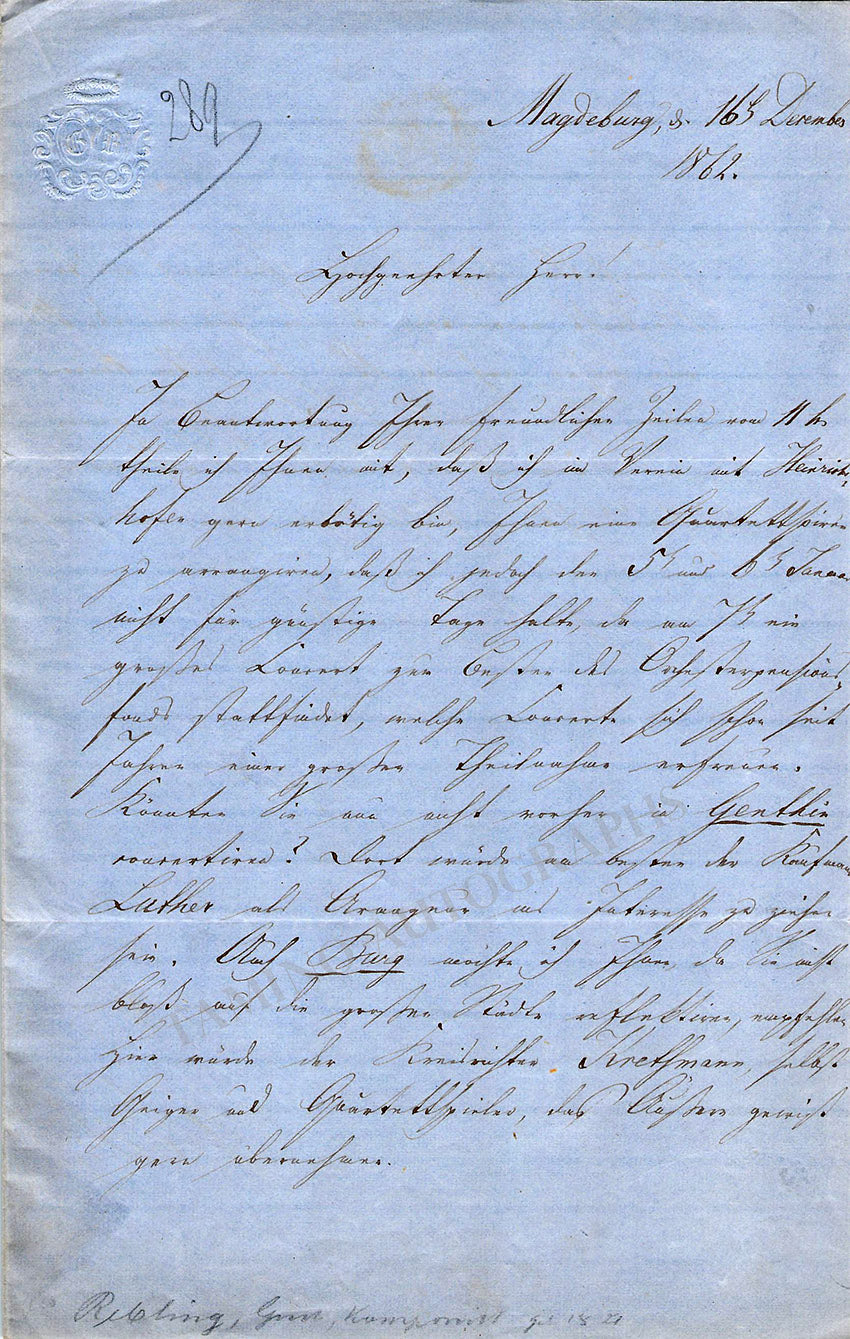 289
Magdeburg, d. 16t December
1862.
Hochgeehrter Herr!
In Beantwortung Ihrer freundlichen Zeilen vom 11 h.
theile ich Ihnen mit, daß ich im Verein mit Heinrichs-
hofen gern erbötig bin, Ihnen eine Quartettsoirée
zu arrangiren, daß ich jedoch den 5t und 6t Januar
nicht für günstige Tage halte, da am 7t ein
großes Concert zum Besten des Orchesterpensions-
fonds stattfindet, welche Concerte sich schon seit
Jahren einer großen Theilnahme erfreuen.
Könnten Sie nun nicht vorher in Genthin
concertiren? Dort würde am besten der Kaufmann
Luther als Arrangeur ins Interesse zu ziehen
sein. Auch Burg möchte ich Ihnen, da Sie nicht
bloß auf die großen Städte reflektiren, empfehlen
Hier würde der Kreisrichter Krethmann, selbst
Geiger und Quartettspieler, das Äußere gewiß
gern übernehmen.
Rebling, Gust, Komponist g. 1821
TAMINO AUTOGRAPHS